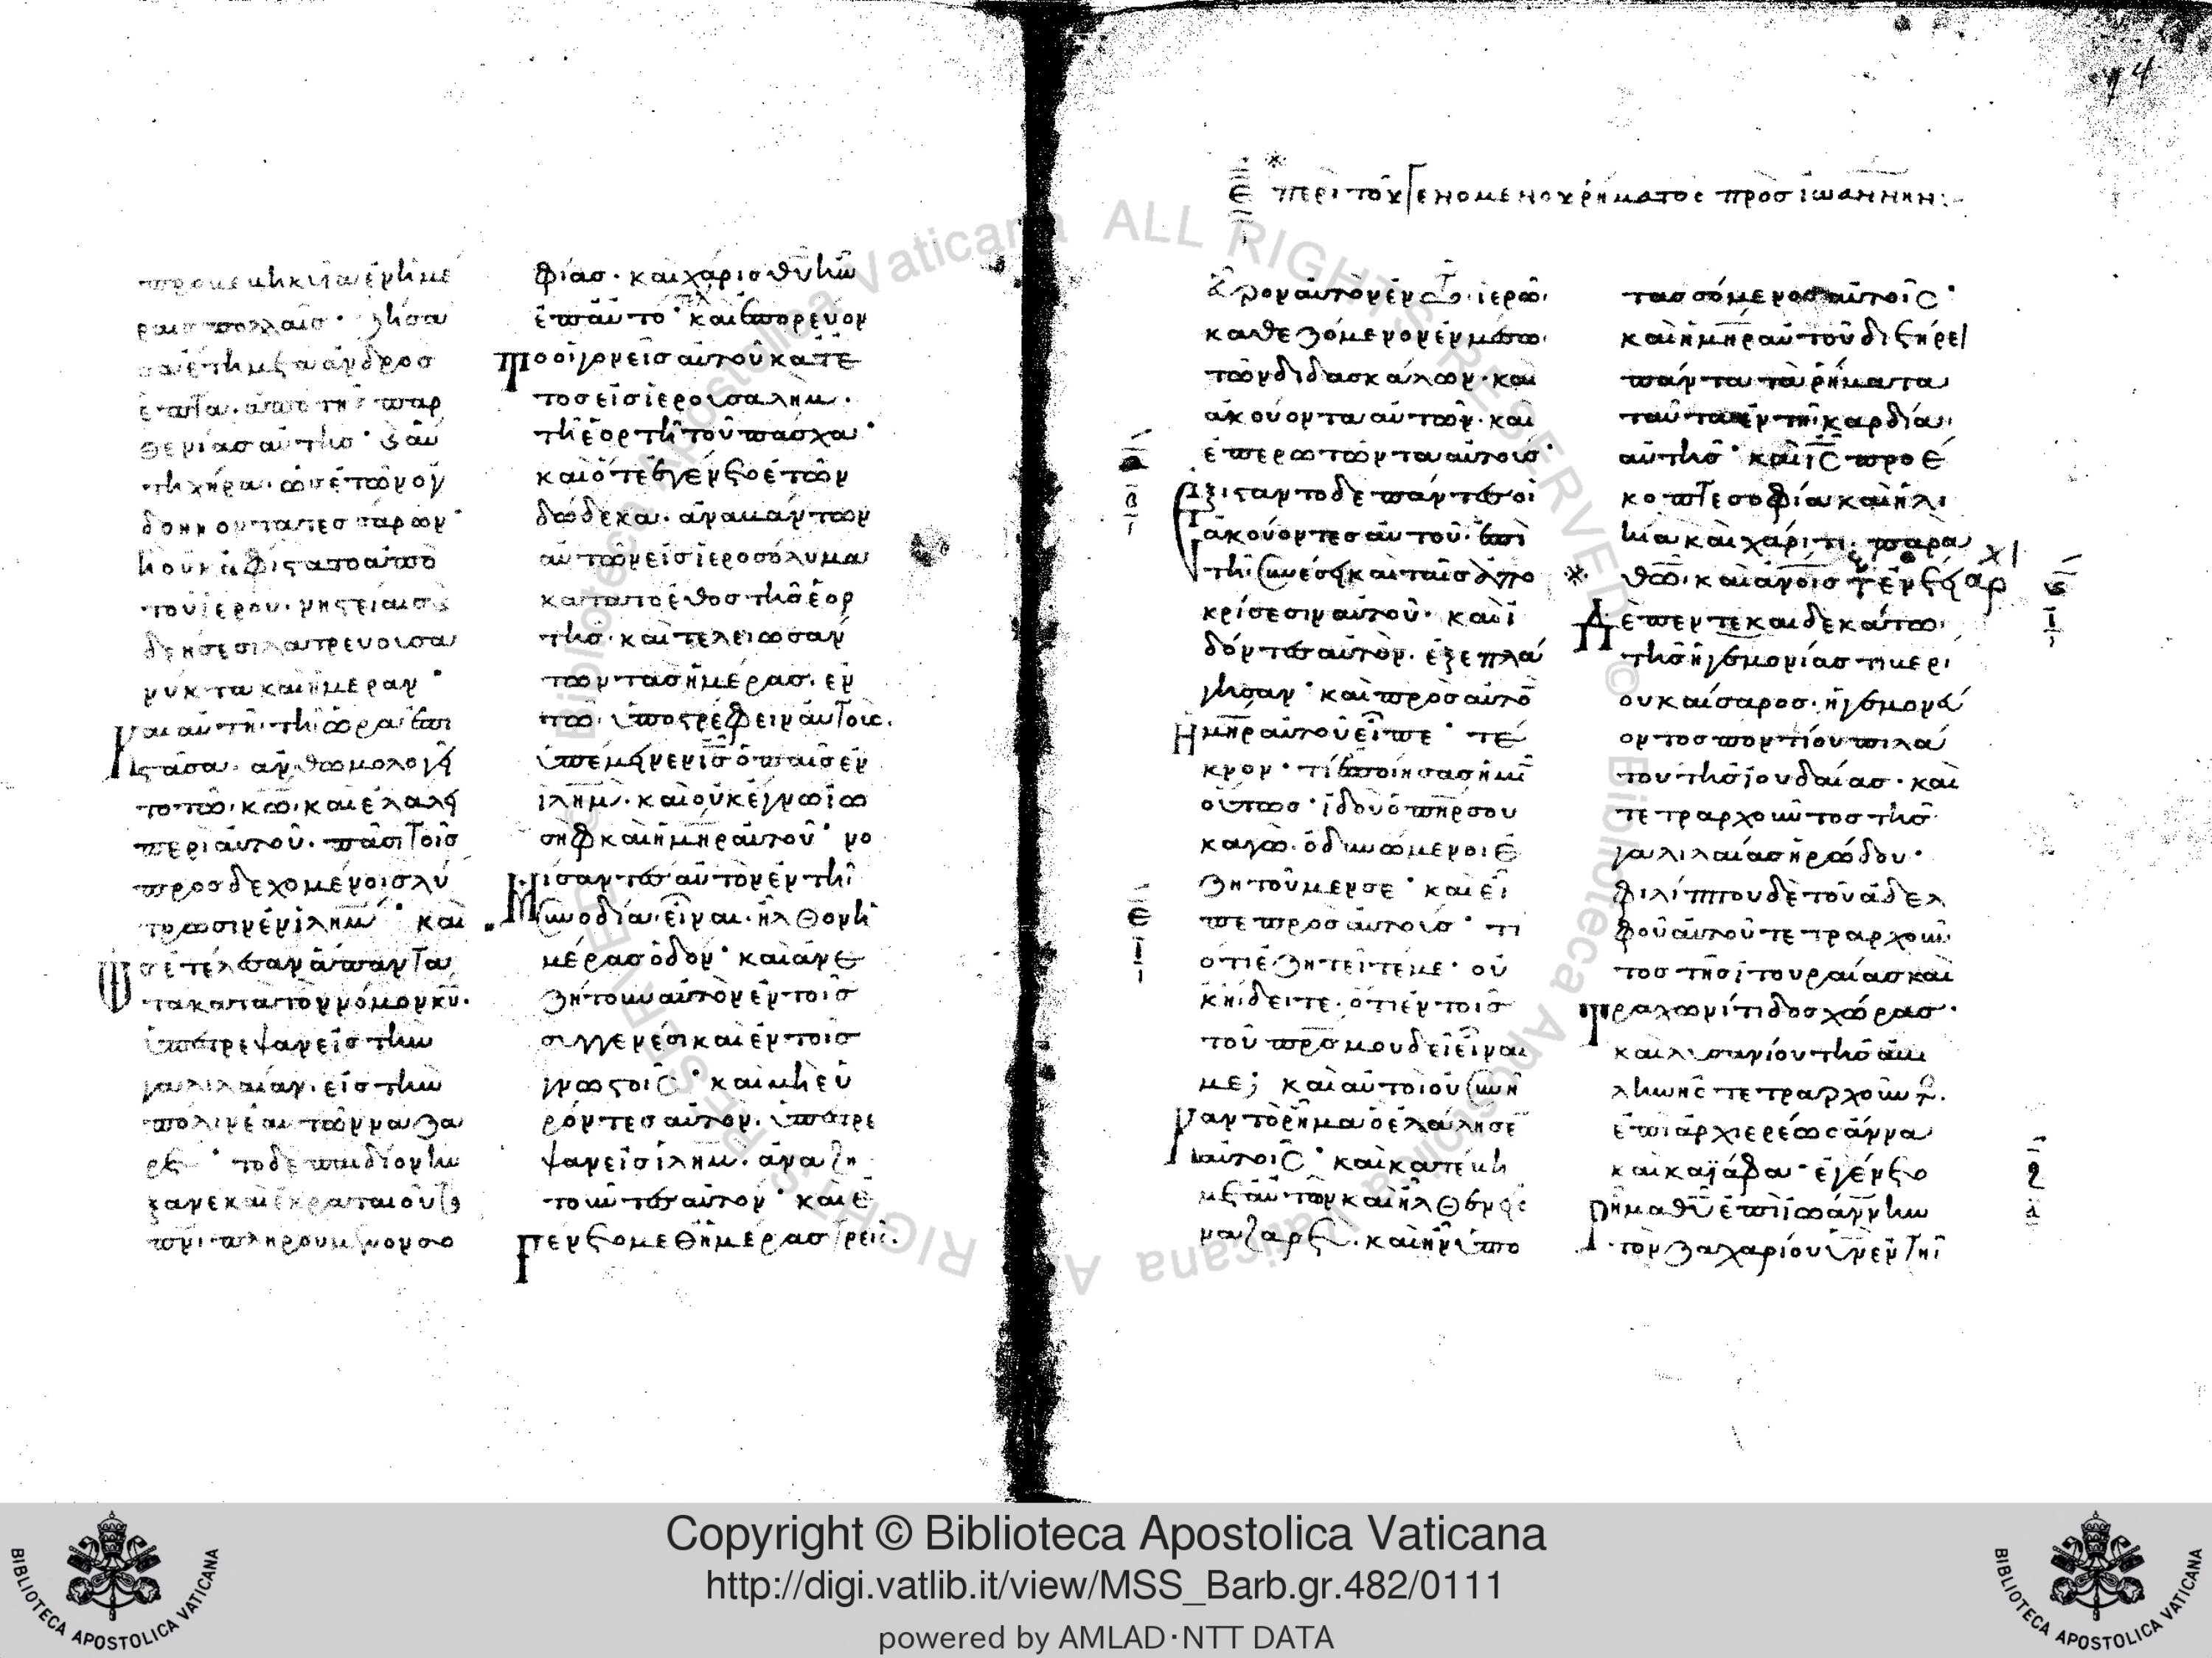 προβεβηκυῖα ἐν ἡμέ
ραις πολλαῖς· ζήσα
σα ἔτη μετὰ ἀνδρὸς
ἑπτὰ. ἀπὸ τῆς παρ
θενίας αὐτῆς· καὶ αὕ
τη χήρα. ὡς ἐτῶν ὀγ
δοηκοντατεσσάρων·
ἣ οὐκ ἀφίστατο ἀπὸ
τοῦ ἱεροῦ. νηστείαις καὶ
δεήσεσι λατρεύουσα
νύκτα καὶ ἡμέραν·
Καὶ αὐτῆ τῆ ὥρα ἐπι
στᾶσα. ἀνθωμολογεῖ
το τῶ κω. καὶ ἐλάλει
περὶ αὐτοῦ. πᾶσι τοῖς
προσδεχομένοις λύ
τρωσιν ἐν ιλημ· καὶ
Ὡς ἐτέλεσαν ἅπαντα
τὰ κατὰ τὸν νόμον κυ.
ὑπέστρεψαν εἰς τὴν
γαλιλαίαν. εἰς τὴν
πόλιν ἑαυτῶν ναζα
ρετ· τὸ δὲ παιδίον ηὔ
ξανε καὶ ἐκραταιοῦτο
πνι πληρούμενον σο
φίας. καὶ χάρις θυ ἦν
ἐπ αὐτὸ· καὶ ἐπορεύον
Το οἱ γονεῖς αὐτοῦ κατ ἔ
τος εἰς ἱερουσαλημ.
τῆ ἑορτῆ τοῦ πάσχα·
καὶ ὅτε ἐγένετο ἐτῶν
δώδεκα. ἀναβάντων
αὐτῶν εἰς ἱεροσόλυμα
κατὰ τὸ ἔθος τῆς ἑορ
τῆς. καὶ τελειωσάν
των τὰς ἡμέρας. ἐν
τῶ ὑποστρέφειν αὐτοὺς.
ὑπέμεινεν ις ὁ παῖς ἐν
ιλημ. καὶ οὐκ ἔγνω ἰω
σὴφ καὶ ἡ μηρ αὐτοῦ· νο
Μίσαντες αὐτὸν ἐν τῆ
συνοδία εἶναι. ἦλθον ἡ
μέρας ὁδὸν· καὶ ἀνε
ζήτουν αὐτὸν ἐν τοῖς
συγγενέσι καὶ ἐν τοῖς
γνωστοῖς· καὶ μὴ εὑ
ρόντες αὐτὸν. ὑπέστρε
ψαν εἰς ιλημ. ἀναζη
τοῦντες αὐτὸν· καὶ ἐ
Γένετο μεθ ἡμέρας τρεῖς.
74
ε περὶ τοῦ γενομένου ῥήματος πρὸς ἰωάννην:-
εὗρον αὐτὸν ἐν τῶ ἱερῶ.
καθεζόμενον ἐν μέσω
τῶν διδασκάλων. καὶ
ἀκούοντα αὐτῶν. καὶ
ἐπερωτῶντα αὐτούς·
Ἐξίσταντο δὲ πάντες οἱ
ἀκούοντες αὐτοῦ. ἐπὶ
τῆ συνέσει καὶ ταῖς ἀπο
κρίσεσιν αὐτοῦ. καὶ ἰ
δόντες αὐτὸν. ἐξεπλά
γησαν· καὶ πρὸς αὐτὸ
Η μηρ αὐτοῦ εἶπε· τέ
κνον· τί ἐποίησας ἡμῖ
οὕτως· ἰδοὺ ὁ πηρ σου
καγὼ. ὀδυνώμενοι ἐ
ζητοῦμεν σε· καὶ εἶ
πε πρὸς αὐτούς· τί
ὅτι ἐζητεῖτέ με· οὐ
κ ἤδειτε. ὅτι ἐν τοῖς
τοῦ πρς μου δεῖ εἶναί
με; καὶ αὐτοὶ οὐ συνῆ
καν τὸ ῥῆμα ὃ ἐλάλησε
αὐτοῖς· καὶ κατέβη
μετ αὐτῶν καὶ ἦλθεν εἰς
ναζαρετ. καὶ ἦν ὑπο
τασσόμενος αὐτοῖς·
καὶ ἡ μηρ αὐτοῦ διετήρει
πάντα τὰ ῥήματα
ταῦτα ἐν τῆ καρδία
αὐτῆς· καὶ ις προέ
κοπτε σοφία καὶ ἡλι
κία καὶ χάριτι. παρὰ
θω. καὶ ἀνοις
Δὲ πεντεκαιδεκάτω
τῆς ἡγεμονίας τιβερί
ου καίσαρος. ἡγεμονεύ
οντος ποντίου πιλά
του τῆς ἰουδαίας. καὶ
τετραρχοῦντος τῆς
γαλιλαίας ἡρώδου·
φιλίππου δὲ τοῦ ἀδελ
φοῦ αὐτοῦ τετραρχοῦν
τος τῆς ἰτουραίας καὶ
Τραχωνίτιδος χώρας·
καὶ λυσανίου τῆς ἀβι
ληνῆς τετραρχοῦντος.
ἐπὶ ἀρχιερέως ἄννα
καὶ καϊάφα· ἐγένετο
Ρῆμα θυ ἐπὶ ἰωάννην
τὸν ζαχαρίου υν ἐν τῆ
Copyright © Biblioteca Apostolica Vaticana
http://digi.vatlib.it/view/MSS_Barb.gr.482/0111
powered by AMLAD·NTT DATA
BIBLIOTECA APOSTOLICA VATICANA
BIBLIOTECA APOSTOLICA VATICANA